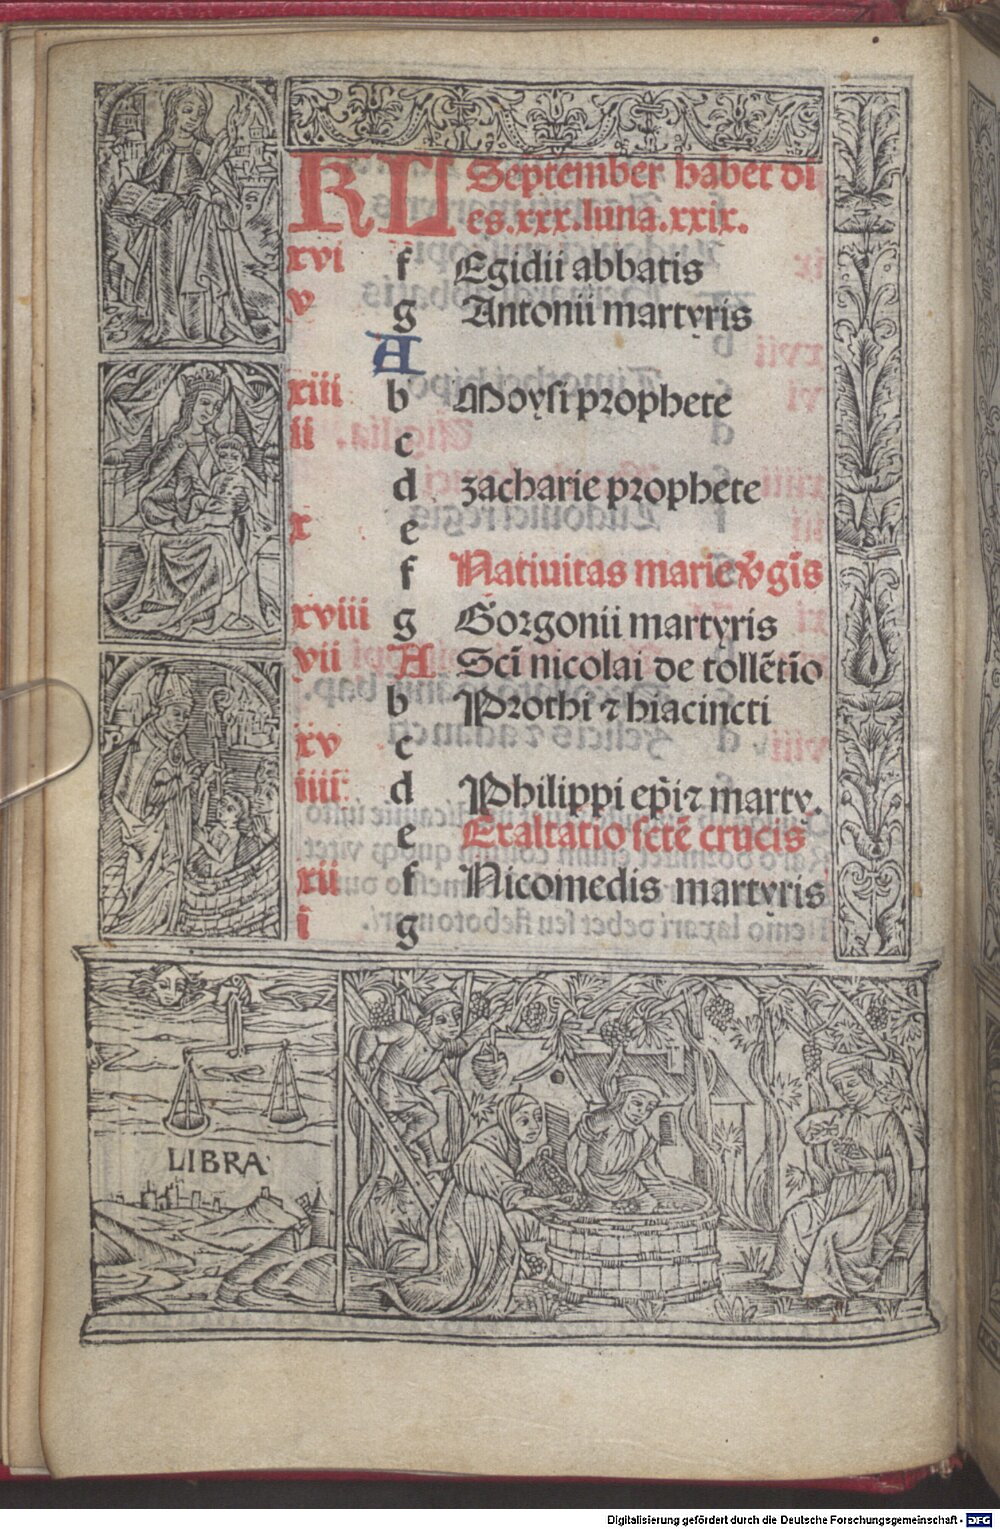 KL September habet di
es.xxx.luna.xxix.
xvi f Egidii abbatis
v g Antonii martyris
A
xiii b Moysi prophete
ii c
d zacharie prophete
x e
f Natiuitas marie v̄gīs
xviii g Gorgonii martyris
vii A Scī nicolai de tollētīo
b Prothi ⁊ hiacincti
xv c
iiii d Philippi ep̄i ⁊ marty.
e Exaltatio sctē crucis
xii f Nicomedis martyris
i g
LIBRA
Digitalisierung gefördert durch die Deutsche Forschungsgemeinschaft - DFG